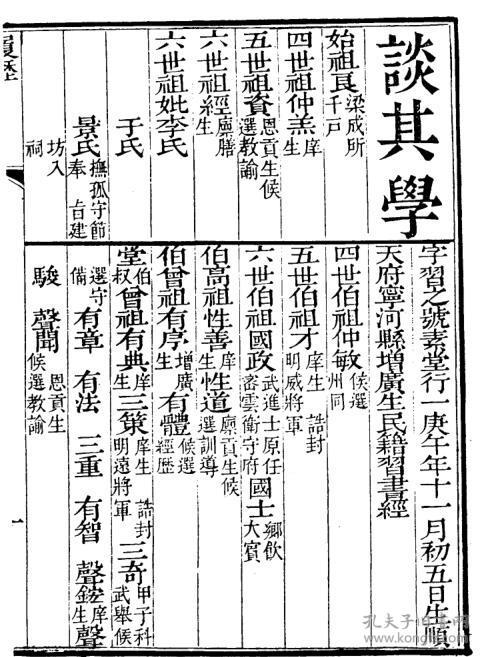 談其學
字習之號素堂行一庚午年十一月初五日生順
天府寧河縣增廣生民籍習書經
始祖良梁成所千戶
四世祖仲羔庠生
五世祖資恩貢生候選教諭
六世祖經廩膳生
六世祖妣李氏
于氏
景氏撫孤守節奉旨建
坊入祠
四世伯祖仲敏候選州同
五世伯祖才庠生誥封明威將軍
六世伯祖國政武進士原任密雲衛守府國士鄉飲大賓
伯高祖性善庠生性道廩貢生候選訓導
伯曾祖有序增廣生有體候選經歷
堂伯叔曾祖有典庠生三策庠生誥封明遠將軍三奇甲子科武舉候
選守備有章有法三重有智聲鋐庠生聲
駿聲聞恩貢生候選教諭
履歷
一
孔夫子旧書网